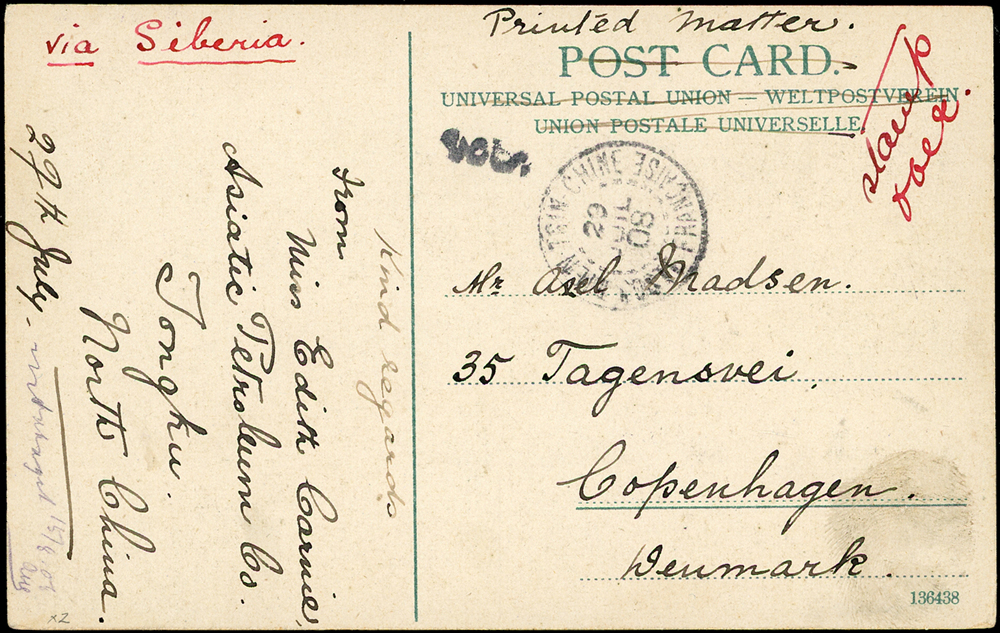 via Siberia.
Printed Matter.
POST CARD.
UNIVERSAL POSTAL UNION — WELTPOSTVEREIN.
UNION POSTALE UNIVERSELLE
stamp
over
Mr Axel Madsen.
35 Tagensvei.
Copenhagen.
Denmark.
136438
Kind regards
From
Miss Edith Carnie,
Asiatic Petroleum Co.
Tongku.
North China.
29th July -
CHINE
29
08
x2